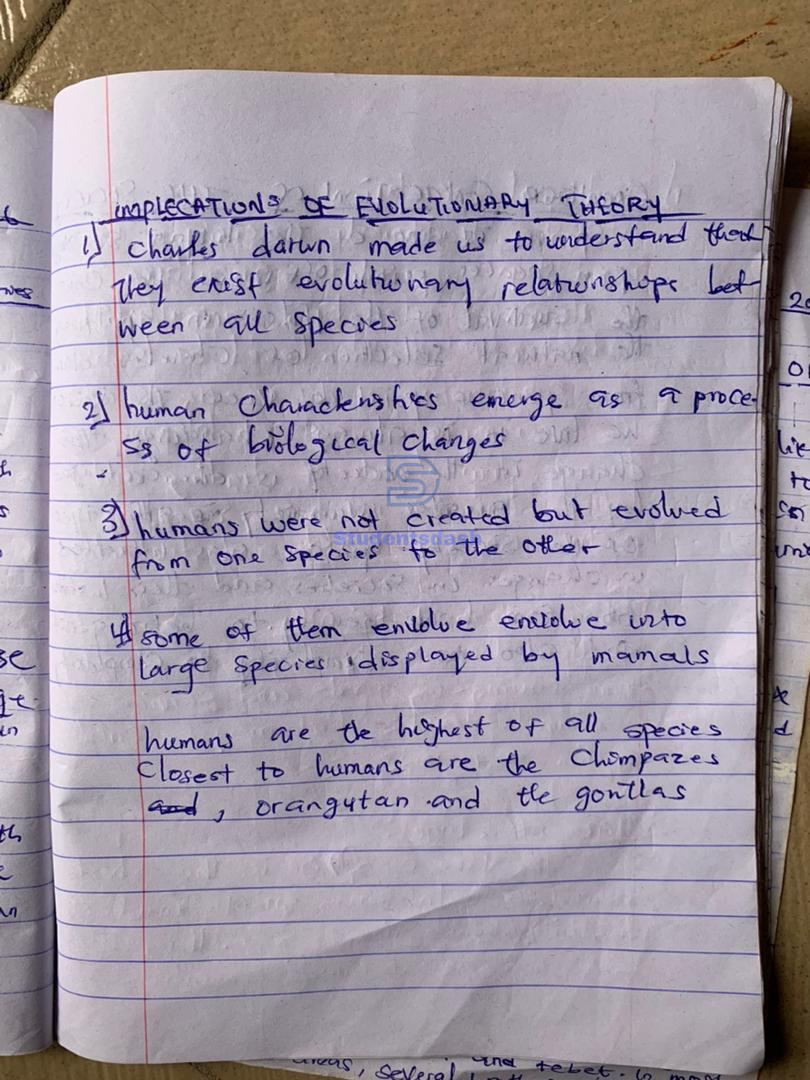 IMPLECATIONS OF EVOLUTIONARY THEORY
1) Charles darwn made us to understand that
they exist evolutionary relationshops bet-
ween all species
2) human Characteristics emerge as a proce-
ss of biological changes
3) humans were not created but evolved
Studentsdash
from one species to the other
4) some of them envolve envolve into
large species displayed by mamals
humans are the highest of all species
Closest to humans are the Chimpazes
and, orangutan and the gorillas
several
and tebet.